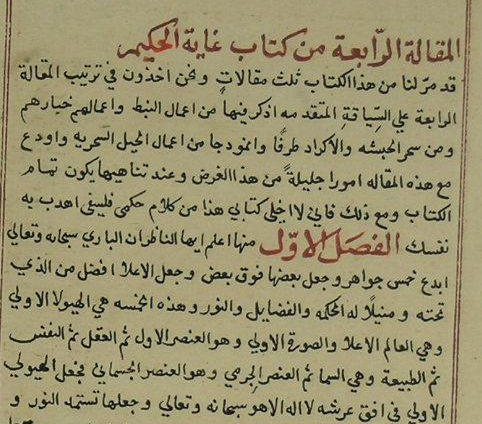 المقالة الرّابعة من كتاب غاية الحكيم
قد مرّ لنا من هذا الكتاب ثلث مقالات ونحن اخذون في ترتيب المقالة
الرابعة علي السّياقةِ المتقدمه اذكر فيها من اعمال النبط واعمالهم خيارهم
ومن سحر الحبشه والاكراد طرفًا وانموذجا من اعمال الحيل السحريه واودع
مع هذه المقاله امورا جليلةً من هذا الغرض وعند تناهيها يكون تمام
الكتاب ومع ذلك فاني لا اخلي كتابي هذا من كلام حكمي فلسفي اهدب به
نفسك الفصل الاوّل منها اعلم ايها الناظر ان الباري سبحانه وتعالي
ابدع خمس جواهر وجعل بعضها فوق بعض وجعل الاعلا افضل من الذي
تحته ومنيلًا له الحكمه والفضايل والنور وهذه الخمسه هي الهيولا الاولي
وهي العالم الاعلا والصورة الاولي وهو العنصر الاول ثم العقل ثم النفس
ثم الطبيعة وهي السما ثم العنصر الجرمي وهو العنصر الجسماني فجعل الهيولي
الاولي في افق عرشه لا اله الا هو سبحانه وتعالي وجعلها تستمد النور و